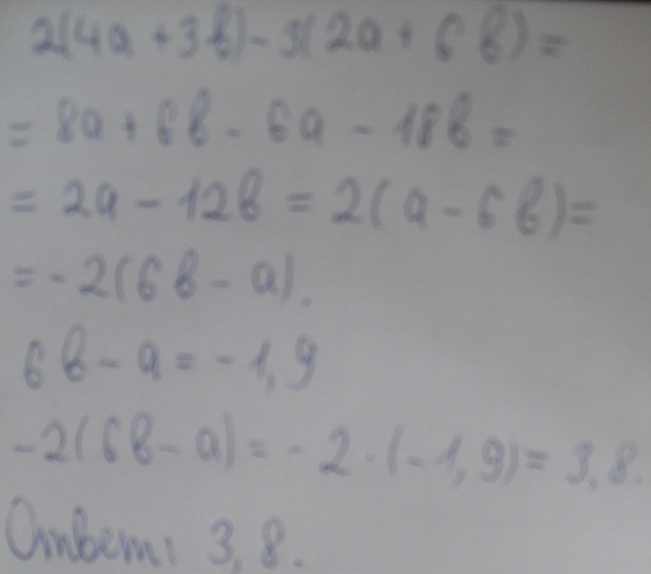 2(4a + 3b) - 3(2a + 6b) =
= 8a + 6b - 6a - 18b =
= 2a - 12b = 2(a - 6b) =
= - 2(6b - a).
6b - a = - 1,9
- 2(6b - a) = - 2 · (- 1, 9) = 3, 8.
Ответ: 3, 8.